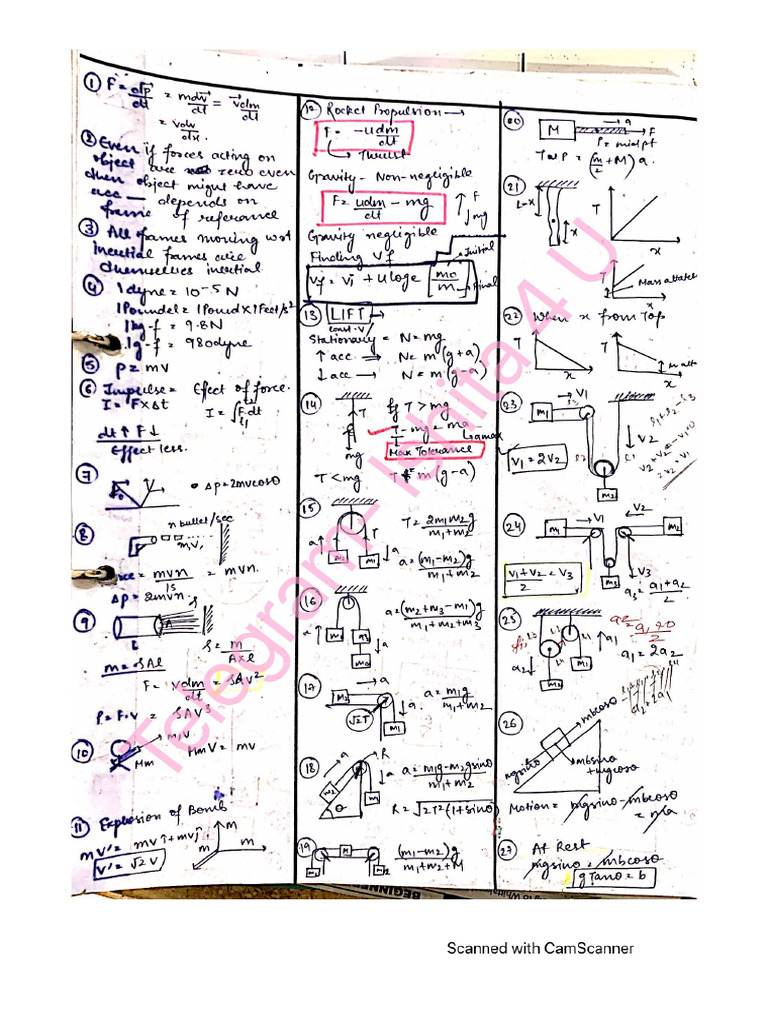 ① F = dp/dt = mdv/dt = vdm/dt
= vdv/dx.
② Even if forces acting on
object are zero even
then object might have
acc — depends on
frame of reference
③ All frames moving wrt
inertial frames are
themselves inertial
④ 1 dyne = 10⁻⁵ N
1 Poundel = 1 Pound x 1 Feet/s²
1kg-f = 9.8N
1g-f = 980dyne
⑤ p = mv
⑥ Impulse = Effect of force.
I = F x Δt I = ∫F.dt
dt ↑ F ↓
Effect less.
⑦ Δp = 2mvcosθ
⑧ n bullet/sec
mv,
= mvn/1s = mvn.
Δp = 2mvn.
⑨ A
l
ρ = m/(A x l)
m = ρAl
F = vdm/dt = ρAv²
P = F.v = ρAv³
⑩ m,v
Mm
MmV = mv
⑪ Explosion of Bomb
mv' = mvî + mvĵ
v' = √2 v
m m m
⑫ Rocket Propulsion →
F = -udm/dt
→ Thrust
Gravity - Non-negligible
F = udm/dt - mg ↑ F ↓ mg
Gravity negligible
Finding Vf
Initial
Vf = Vi + u loge [mo/m] Final
⑬ LIFT →
const. v
Stationary = N = mg
↑ acc → N = m(g+a)
↓ acc → N = m(g-a)
⑭ T If T > mg
T - mg = ma
↳ amax
Max Tolerance
mg
T < mg T = m(g-a)
⑮ T = 2m1m2g/m1+m2
T a m1 m2
a = (m1-m2)g/m1+m2
⑯ a = (m2+m3-m1)g/m1+m2+m3
a
⑰ → a
M2 a = m1g/m1+m2
√2T M1 a.
⑱ a R
a = m1g - m2gsinθ/m1+m2
m2 θ m1
R = √2T²(1+sinθ)
⑲ M (m1-m2)g/m1+m2+M
m1 m2
⑳ M → a → F
P = mid pt
T at P = (m/2 + M) a.
㉑ L-x x T x
T x
㉒ When x from Top
T x T x
㉓ M1 → V1
V1 = 2V2 V2
M2
㉔ m1 → V1 V2 ← m2
V1+V2/2 = V3 M3 V3
a3 = a1+a2/2
㉕ a2 M2 M1 a1
a1 = 2a2
㉖ mbcosθ
mgsinθ mbsinθ
+ mgcosθ
Motion = mgsinθ - mbcosθ
= ma
㉗ At Rest
mgsinθ = mbcosθ
gTanθ = b
Telegram - Ishita 4 U
BEGINNER
Scanned with CamScanner